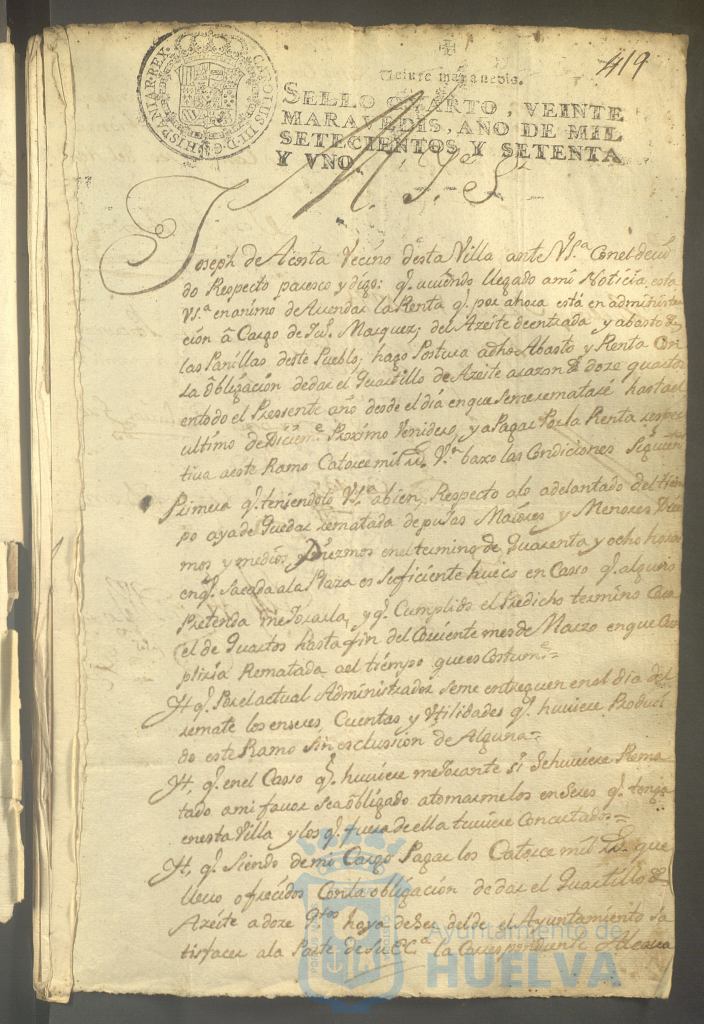 419
CAROLUS III D. G. HISPANIAR REX
Veinte maravedis.
SELLO QUARTO, VEINTE
MARAVEDIS, AÑO DE MIL
SETECIENTOS Y SETENTA
Y VNO.
M. Ye. Sr.
Joseph de Acosta Vecino desta Villa ante VSa. Con el devi
do Respecto paresco y digo: q. aviendo llegado a mi Noticia, esta
VSa. en animo de Arrendar la Renta q. por ahora está en administra
ción â Cargo de Marquez, del Azeite de entrada y abasto de
las Panillas deste Pueblo; hago Postura a dho Abasto y Renta Con
La Obligación de dar el Quartillo de Azeite a razon de doze quartos
en todo el Pressente año desde el dia en que se me rematare hasta el
ultimo de Diciem.e Proximo Venidero, y a Pagar Por la Renta respec
tiva a este Ramo Catorce mil rs. Vn. baxo las Condiciones Siguien
Primera q. teniendolo VSa. a bien, Respecto a lo adelantado del tiem
po aya de Quedar rematada de puxas Maiores y Menores Diez
mos y medios Diezmos en el termino de Quarenta y ocho horas
en q. sacada a la Plaza es suficiente hueco en Casso q. alguno
Pretenda mejorarla, y q. Cumplido el Predicho termino Co
el de Quartos hasta fin del Corriente mes de Marzo en que Cum
pliria Rematada a el tiempo que es Costum.e=
Yt q. Por el actual Administrador se me entreguen en el dia del
remate los enseres, Cuentas y Vtilidades q. huviere Produci
do este Ramo sin esclussion de Alguna=
Yt, q. en el Casso q. huviere mejorante si Se huviere Rema
tado a mi favor sea obligado a tomarme los enseres q. tenga
en esta Villa y los q. fuera de ella tuviere Concertados=
Yt, q. Siendo de mi Cargo Pagar los Catorce mil rs. que
llevo ofrecidos Con la obligación de dar el Quartillo de
Azeite a doze q.tos haya de Ser desde el Ayuntamiento Sa
tisfacer a la Parte de Su ECa. la Correspondiente Alcava
Ayuntamiento de
HUELVA